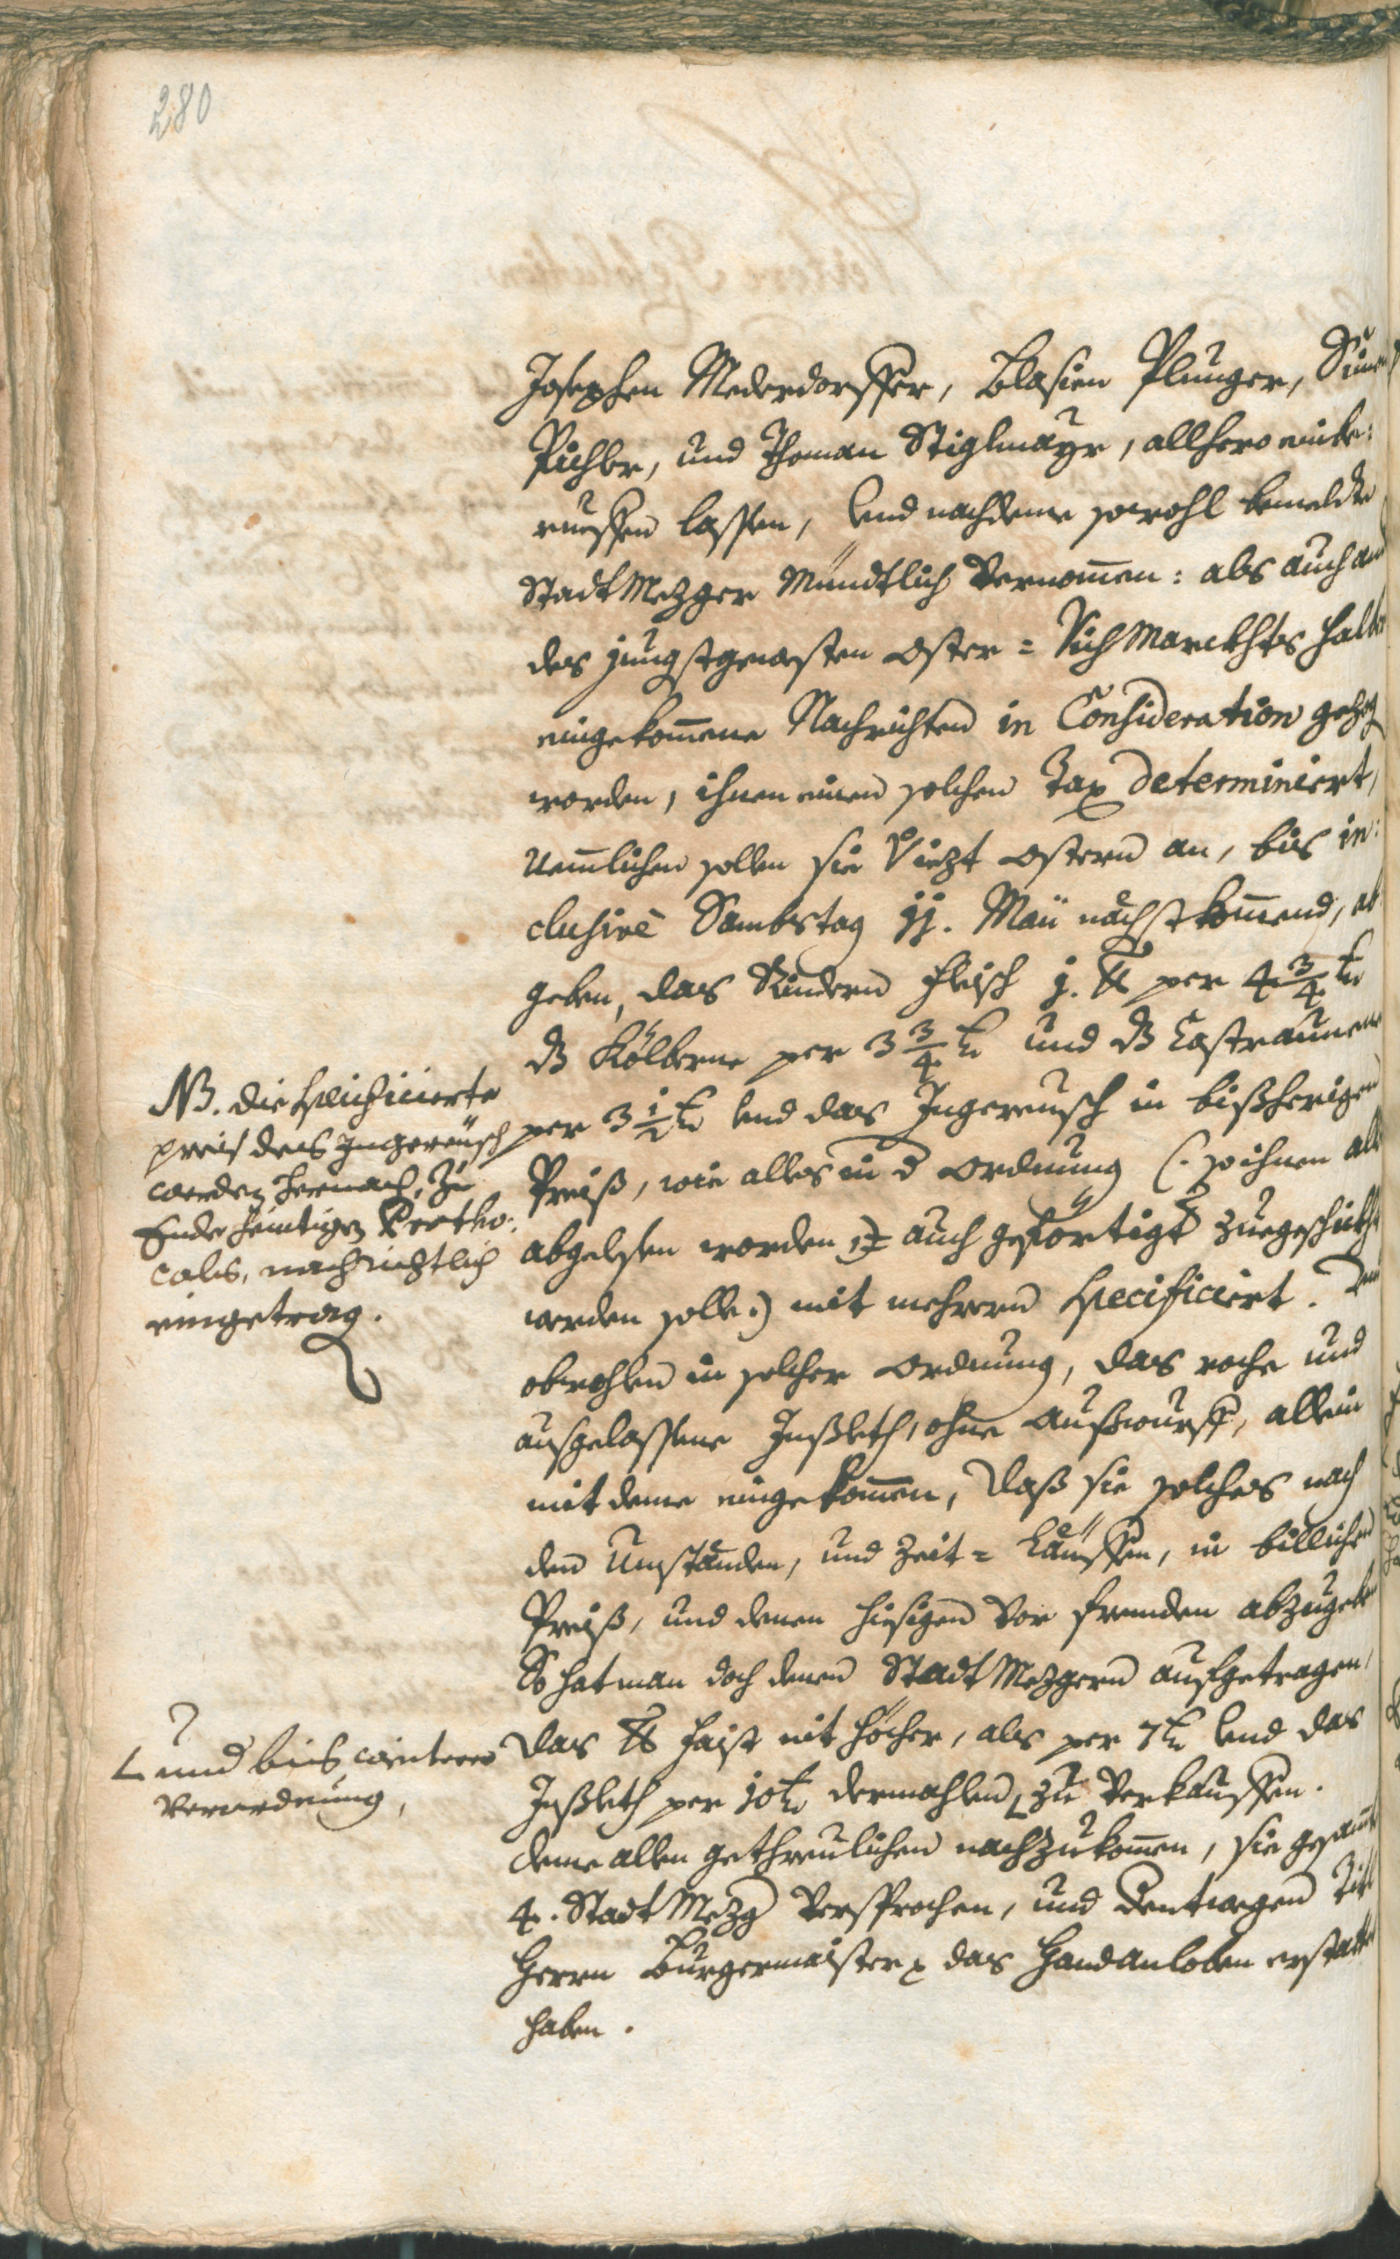 280
Josephen Mederdorffer, Blasien Plunger, Simon
Pichler, und Thoman Stiglmayr, allhero einbe:
rueffen lassen, und nachdeme sowohl bemeldte
Stadt Mezger Mündtlich Vernomen: als auch and
des jüngstgewesten Oster= Vich Marckhts halber
eingekomene Nachrichten in Consideration gezog
worden, ihnen einen solchen Tax determiniert,
Nemlichen sollen sie Viezt Ostern an, bis in:
clusivè Sambstag 11. Maii nächstkomend, ab
geben, das Rindern Fleisch j. ℔ per 4 3/4 kr
dz Kölberne per 3 3/4 kr und dz Castraunene
per 3 1/2 kr und das Ingereusch in bißherigen
Preiß, wie alles in d Ordnung (: so ihnen all
abgelesen worden, auch geförtigt zuegeschickht
werden solle:) mit mehrern specificiert. Und
obwohlen in solcher Ordnung, das roche und
ausgelassene Inßleth, ohne Außwurff, allein
mit deme eingekomen, daß sie solches nach
den Umständen, und Zeit= Läuffen, in billichen
Preiß, und denen hiesigen vor frembden abzugeben
So hat man doch denen Stadt Mezgern aufgetragen,
das ℔ faist nit höcher, als per 7 kr und das
Inßleth per 10 kr dermahlen, zu Verkauffen.
deme allen gethreulichen nachzukomen, sie gesamte
4. Stadt Mezg Versprochen, und dentwegen Titl
Herrn Burgermaister das Handanloben erstattet
haben.
NB. die specificierte
preis des Ingereusch
werden hernach, zu
Ende heintigen Protho:
cols, nachrichtlich
eingetrag.
und bis weiterer
Verordnung,